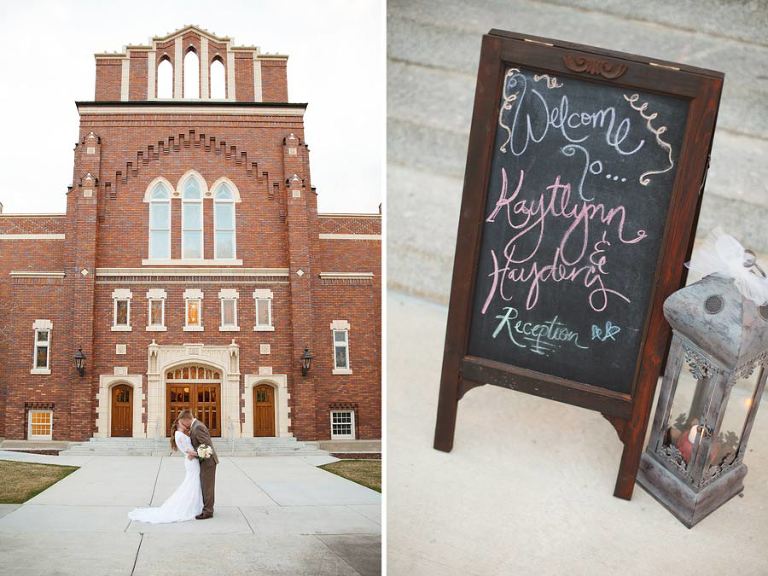 Welcome
to...
Kaytlynn
&
Hayden's
Reception